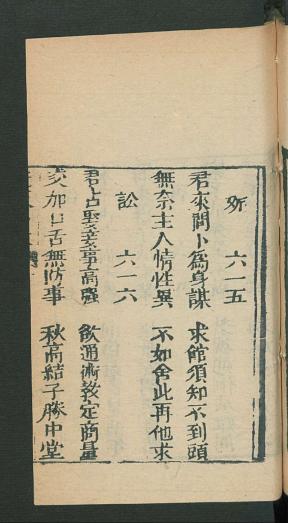 斨 六一五
君來問卜為身謀 求館須知不到頭
無奈主人情性異 不如舍此再他求
訟 六一六
君占聖筶事高強 飲通術教定商量
交加口舌無防事 秋高結子勝中堂